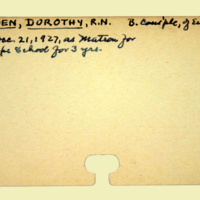 EN, DOROTHY, R.N. B. Consple, of
ec. 21, 1927, as Matron for
pe School for 3 yrs.